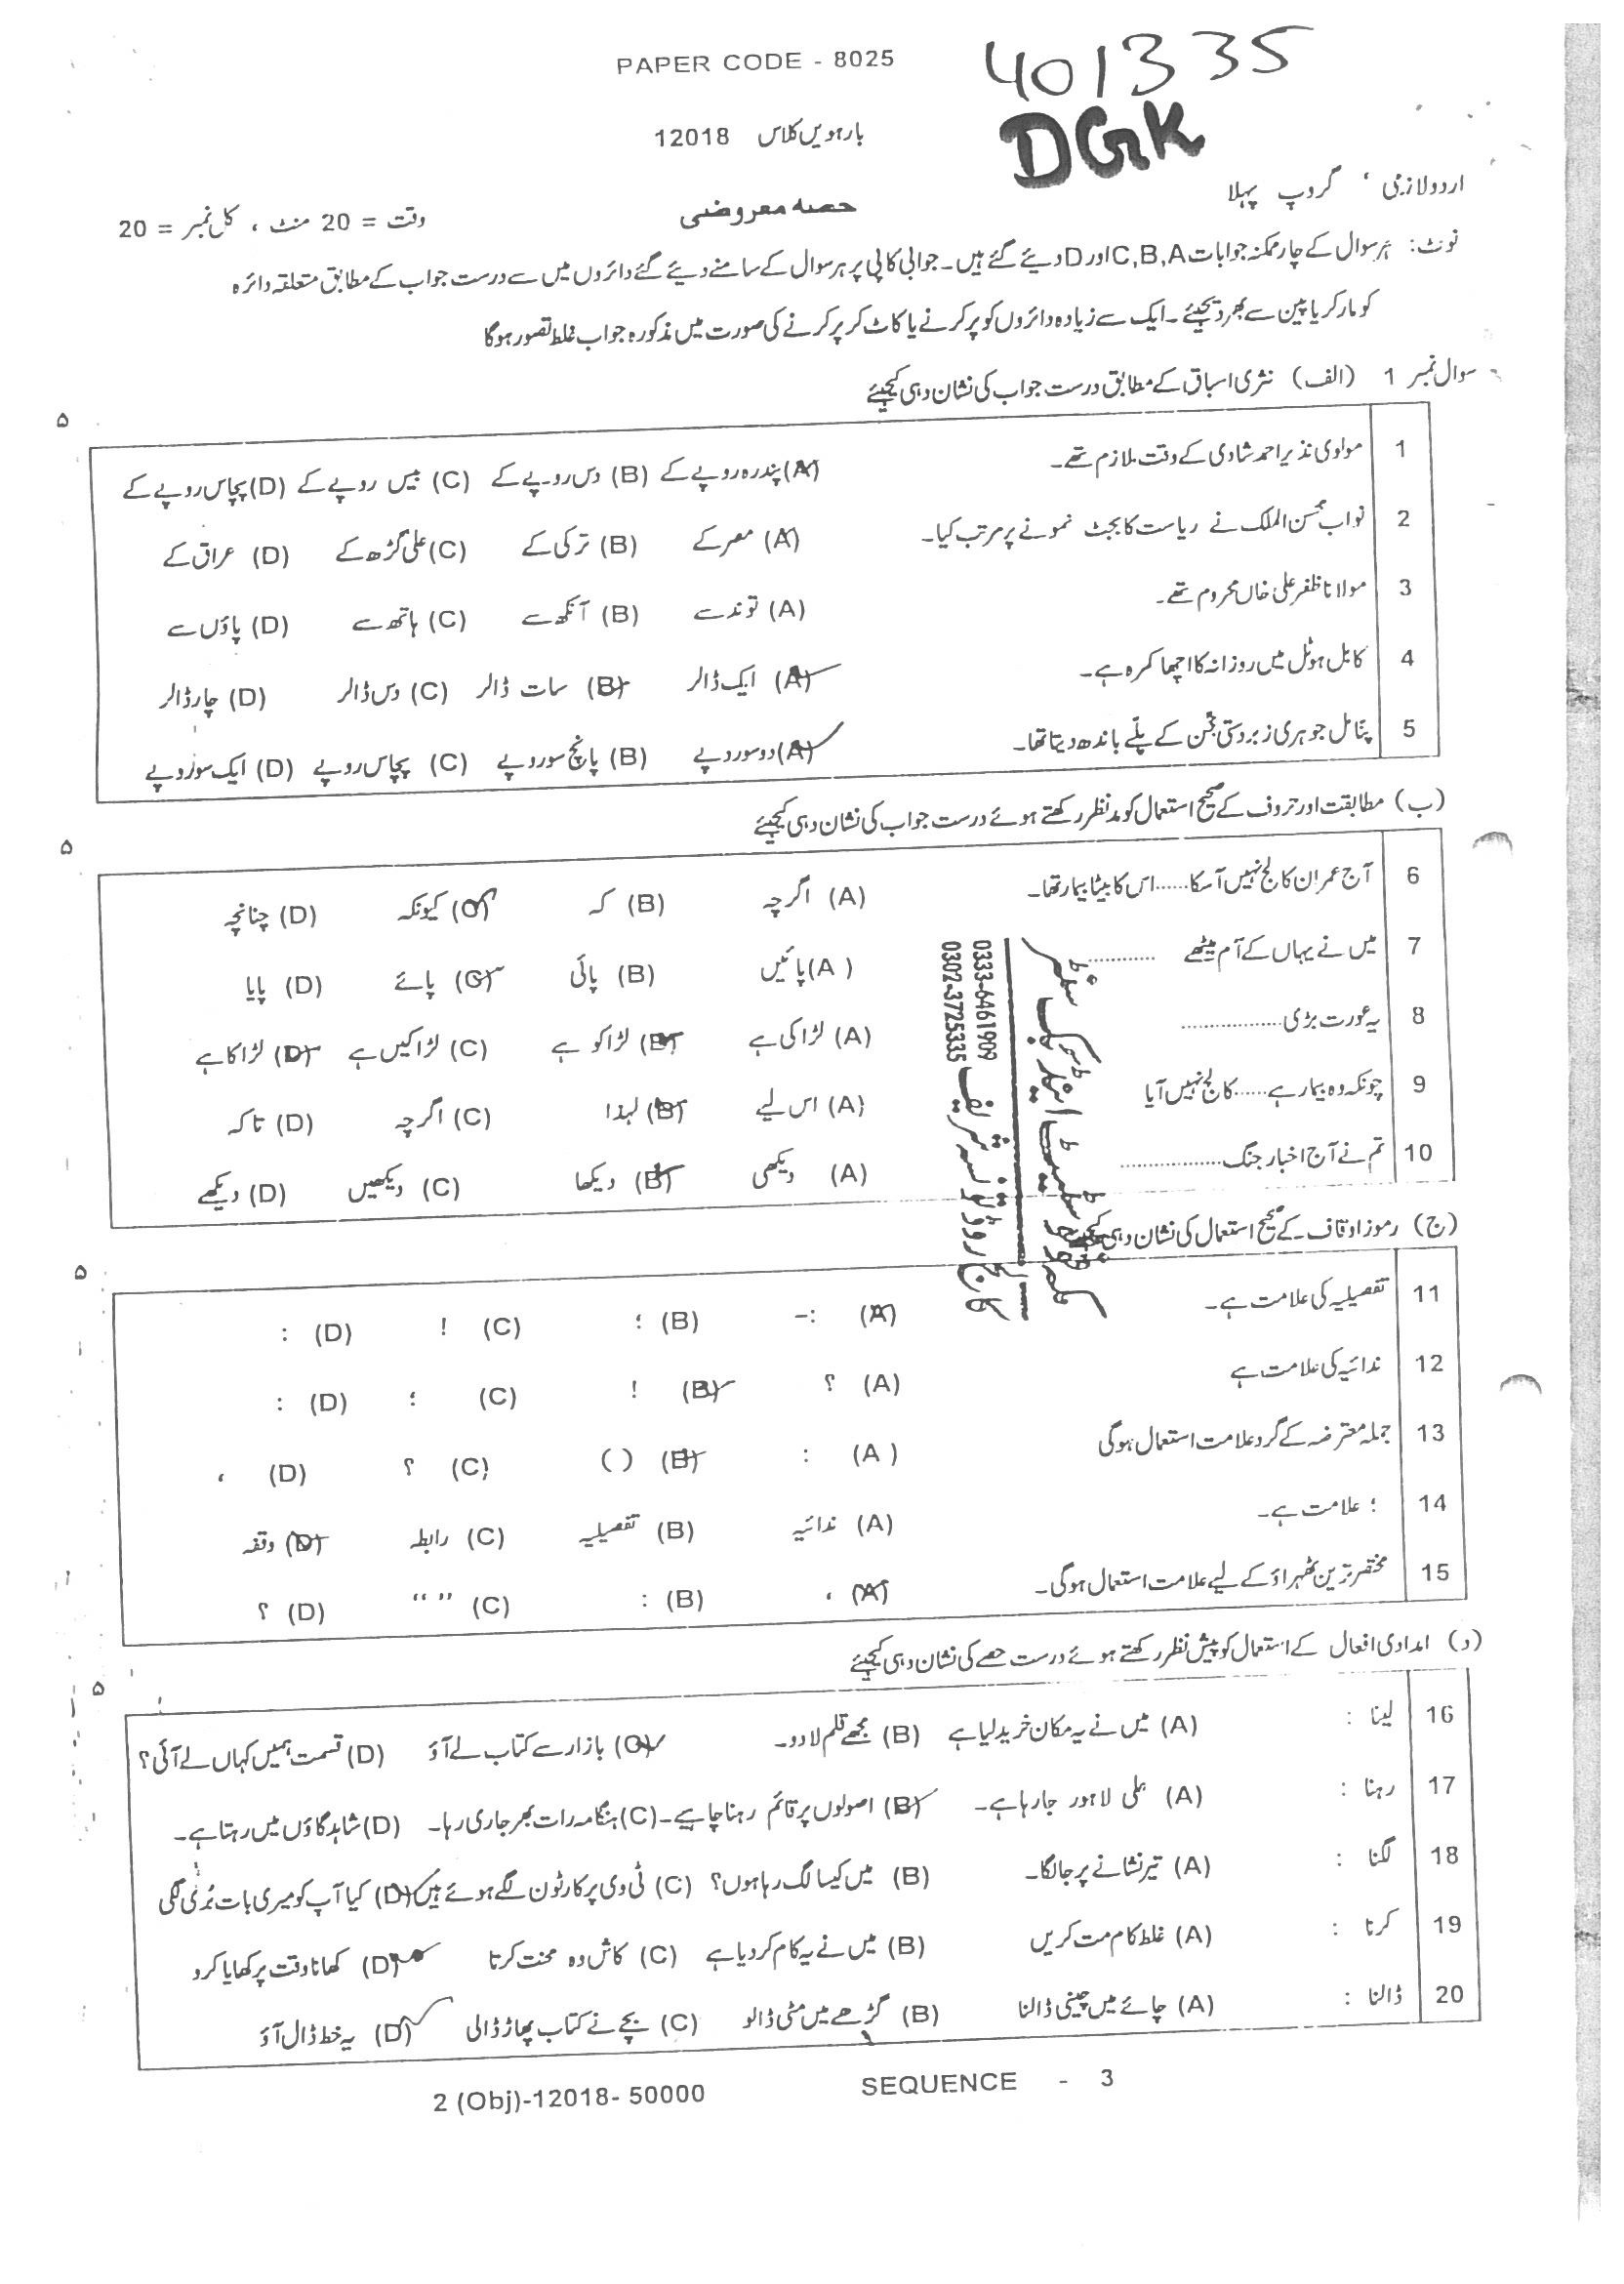 PAPER CODE - 8025
401335
DGK
بارہویں کلاس 12018
اردو لازمی ، گروپ پہلا
حصہ معروضی
وقت = 20 منٹ ، کل نمبر = 20
نوٹ: ہر سوال کے چار ممکنہ جوابات C,B,A اور D دیئے گئے ہیں۔ جوابی کاپی پر ہر سوال کے سامنے دیئے گئے دائروں میں سے درست جواب کے مطابق متعلقہ دائرہ
کو مارکر یا پین سے بھر دیجیئے۔ ایک سے زیادہ دائروں کو پر کرنے یا کاٹ کر پر کرنے کی صورت میں مذکورہ جواب غلط تصور ہوگا
سوال نمبر 1 (الف) نثری اسباق کے مطابق درست جواب کی نشان دہی کیجیئے ۵
1 مولوی نذیر احمد شادی کے وقت ملازم تھے۔ (A) پندرہ روپے کے (B) دس روپے کے (C) بیس روپے کے (D) پچاس روپے کے
2 نواب محسن الملک نے ریاست کا بجٹ نمونے پر مرتب کیا۔ (A) مصر کے (B) ترکی کے (C) علی گڑھ کے (D) عراق کے
3 مولانا ظفر علی خاں محروم تھے۔ (A) توند سے (B) آنکھ سے (C) ہاتھ سے (D) پاؤں سے
4 کابل ہوٹل میں روزانہ کا اچھا کمرہ ہے۔ (A) ایک ڈالر (B) سات ڈالر (C) دس ڈالر (D) چار ڈالر
5 پنّا مل جوہری زبردستی جمّن کے پلّے باندھ دیتا تھا۔ (A) دو سو روپے (B) پانچ سو روپے (C) پچاس روپے (D) ایک سو روپے
(ب) مطابقت اور حروف کے صحیح استعمال کو مدنظر رکھتے ہوئے درست جواب کی نشان دہی کیجیئے ۵
6 آج عمران کالج نہیں آ سکا...... اس کا بیٹا بیمار تھا۔ (A) اگرچہ (B) کہ (C) کیونکہ (D) چنانچہ
7 میں نے یہاں کے آم میٹھے ............ (A) پائیں (B) پائی (C) پائے (D) پایا
8 یہ عورت بڑی .................. (A) لڑاکی ہے (B) لڑاکو ہے (C) لڑاکیں ہے (D) لڑاکا ہے
9 چونکہ وہ بیمار ہے...... کالج نہیں آیا (A) اس لیے (B) لہذا (C) اگرچہ (D) تاکہ
10 تم نے آج اخبار جنگ .................. (A) دیکھی (B) دیکھا (C) دیکھیں (D) دیکھے
0333-6461909
0302-3725335
کالج روڈ تونسہ شریف
(ج) رموز اوقاف کے صحیح استعمال کی نشان دہی کیجیئے ۵
11 تفصیلیہ کی علامت ہے۔ (A) :- (B) ؛ (C) ! (D) :
12 ندائیہ کی علامت ہے (A) ؟ (B) ! (C) ؛ (D) :
13 جملہ معترضہ کے گرد علامت استعمال ہوگی (A) : (B) ( ) (C) ؟ (D) ،
14 ؛ علامت ہے۔ (A) ندائیہ (B) تفصیلیہ (C) رابطہ (D) وقفہ
15 مختصر ترین ٹھہراؤ کے لیے علامت استعمال ہوگی۔ (A) ، (B) : (C) “ ” (D) ؟
(د) امدادی افعال کے استعمال کو پیش نظر رکھتے ہوئے درست حصے کی نشان دہی کیجیئے ۵
16 لینا : (A) میں نے یہ مکان خرید لیا ہے (B) مجھے قلم لا دو۔ (C) بازار سے کتاب لے آؤ (D) قسمت ہمیں کہاں لے آئی؟
17 رہنا : (A) علی لاہور جا رہا ہے۔ (B) اصولوں پر قائم رہنا چاہیے۔ (C) ہنگامہ رات بھر جاری رہا۔ (D) شاہد گاؤں میں رہتا ہے۔
18 لگنا : (A) تیر نشانے پر جا لگا۔ (B) میں کیسا لگ رہا ہوں؟ (C) ٹی وی پر کارٹون لگے ہوئے ہیں (D) کیا آپ کو میری بات بُری لگی
19 کرنا : (A) غلط کام مت کریں (B) میں نے یہ کام کر دیا ہے (C) کاش وہ محنت کرتا (D) کھانا وقت پر کھایا کرو
20 ڈالنا : (A) چائے میں چینی ڈالنا (B) گڑھے میں مٹی ڈالو (C) بچے نے کتاب پھاڑ ڈالی (D) یہ خط ڈال آؤ
2 (Obj)-12018- 50000 SEQUENCE - 3